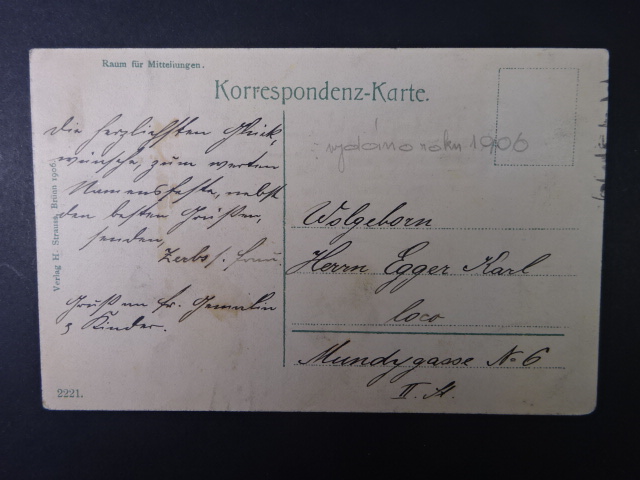 Raum für Mitteilungen.
Korrespondenz-Karte.
Die herzlichsten Glück,
wünsche, zum werten
Namensfeste, nebst
den besten Grüßen,
senden,
Frau.
Gruß an Fr. Gemalin
3 Kinder.
vydáno roku 1906
Wolgeborn
Herrn Egger Karl
loco
Mundygasse No 6
II. St.
Verlag H. Strauss, Brünn 1906.
2221.